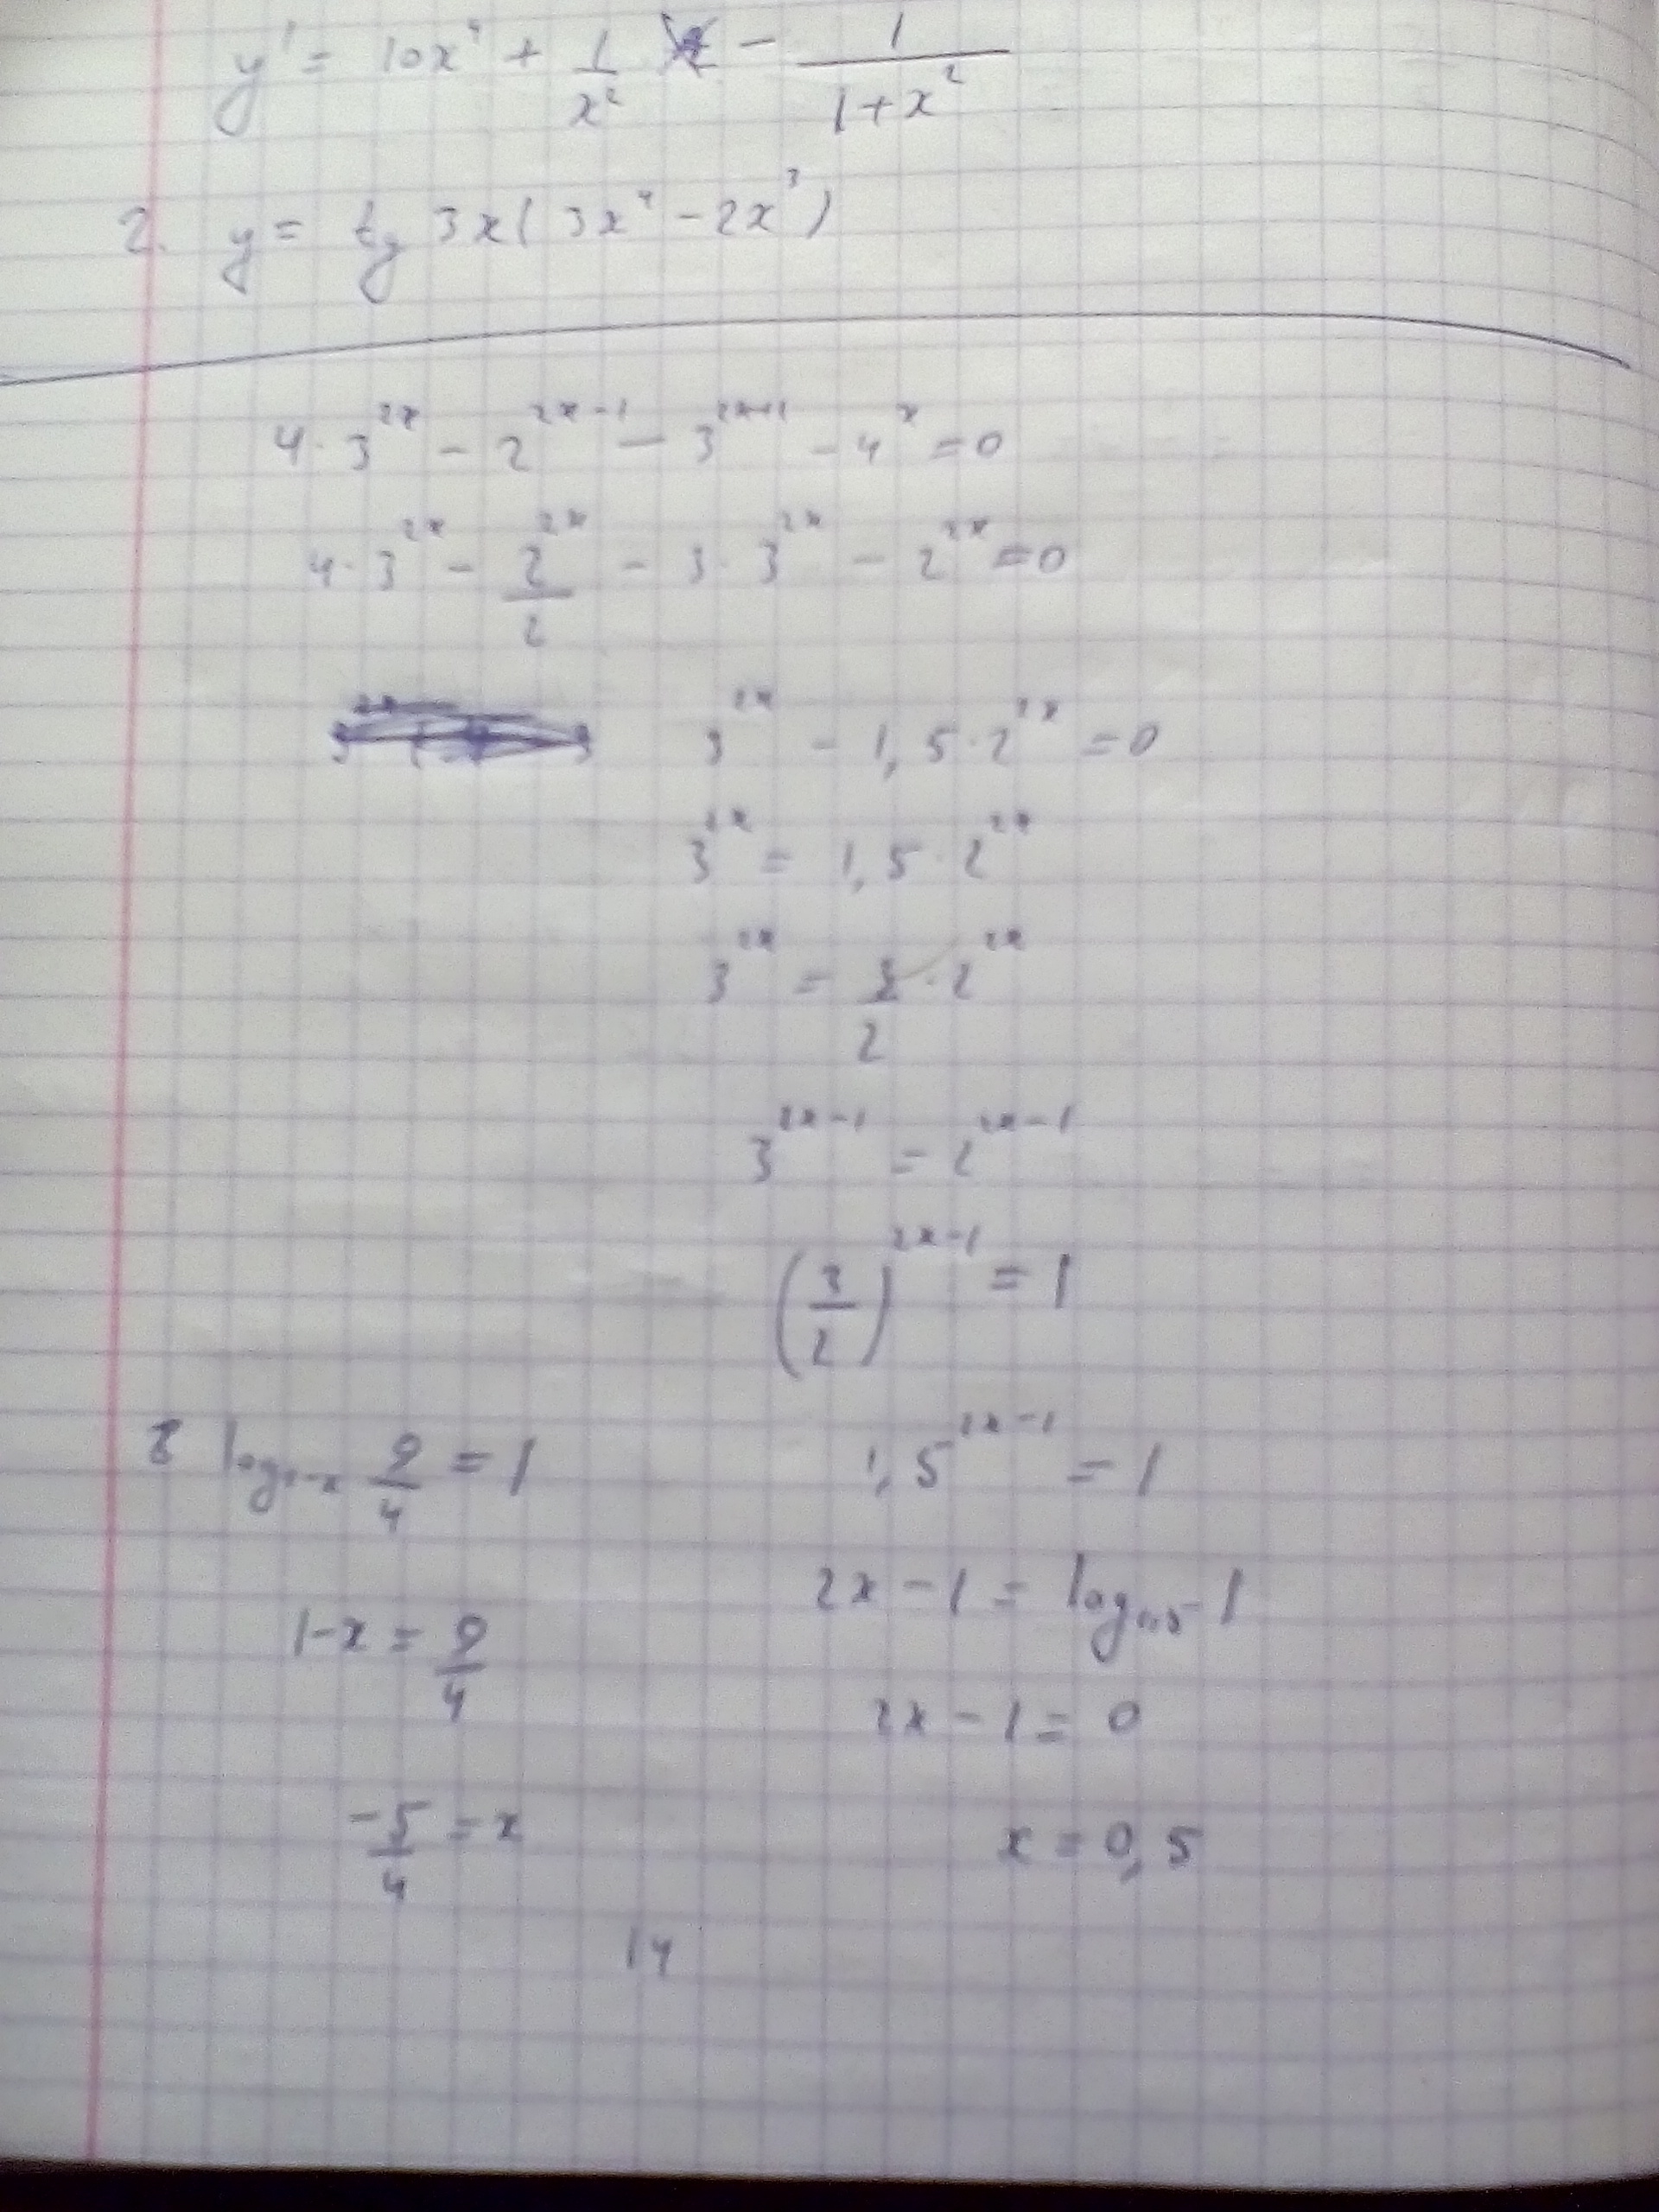 y' = 10x⁴ + 1/x² - 1/(1+x²)
2. y = tg 3x(3x⁴ - 2x³)
4·3^(2x) - 2^(2x-1) - 3^(2x+1) - 4^x = 0
4·3^(2x) - 2^(2x)/2 - 3·3^(2x) - 2^(2x) = 0
3^(2x) - 1,5·2^(2x) = 0
3^(2x) = 1,5·2^(2x)
3^(2x) = 3/2·2^(2x)
3^(2x-1) = 2^(2x-1)
(3/2)^(2x-1) = 1
8 log_(1-x) 9/4 = 1
1-x = 9/4
-5/4 = x
1,5^(2x-1) = 1
2x-1 = log_(1,5) 1
2x-1 = 0
x = 0,5
14